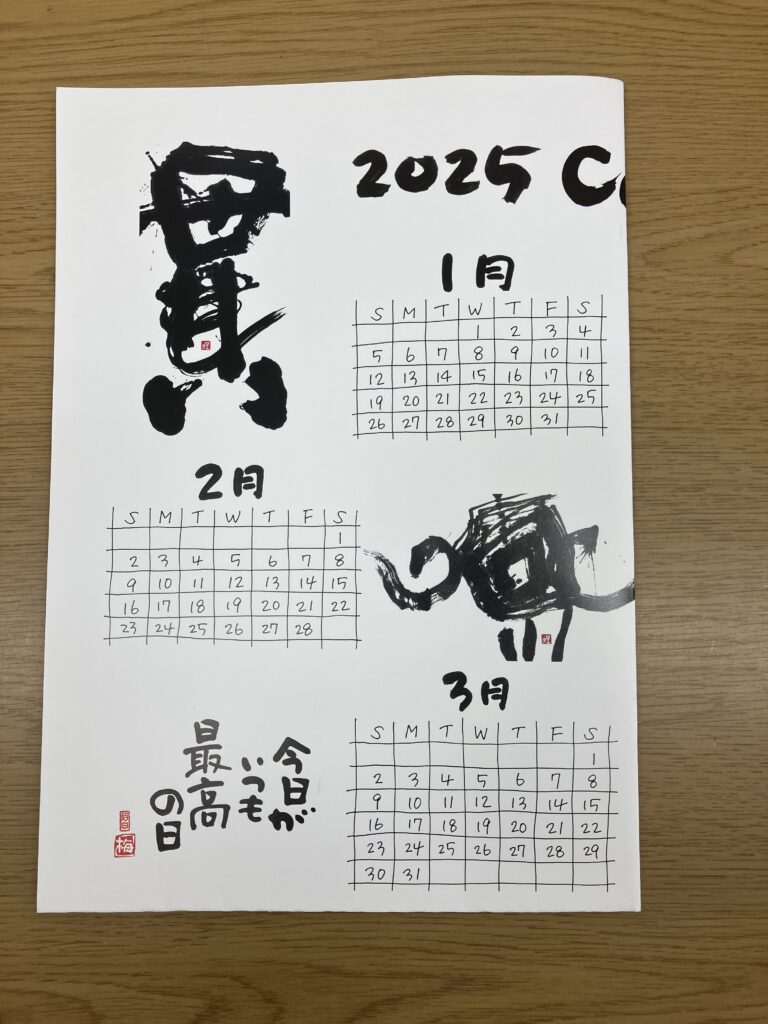 貫
2025 C
1月
S M T W T F S
1 2 3 4
5 6 7 8 9 10 11
12 13 14 15 16 17 18
19 20 21 22 23 24 25
26 27 28 29 30 31
2月
S M T W T F S
1
2 3 4 5 6 7 8
9 10 11 12 13 14 15
16 17 18 19 20 21 22
23 24 25 26 27 28
3月
S M T W T F S
1
2 3 4 5 6 7 8
9 10 11 12 13 14 15
16 17 18 19 20 21 22
23 24 25 26 27 28 29
30 31
今日が
いつも
最高
の日
梅